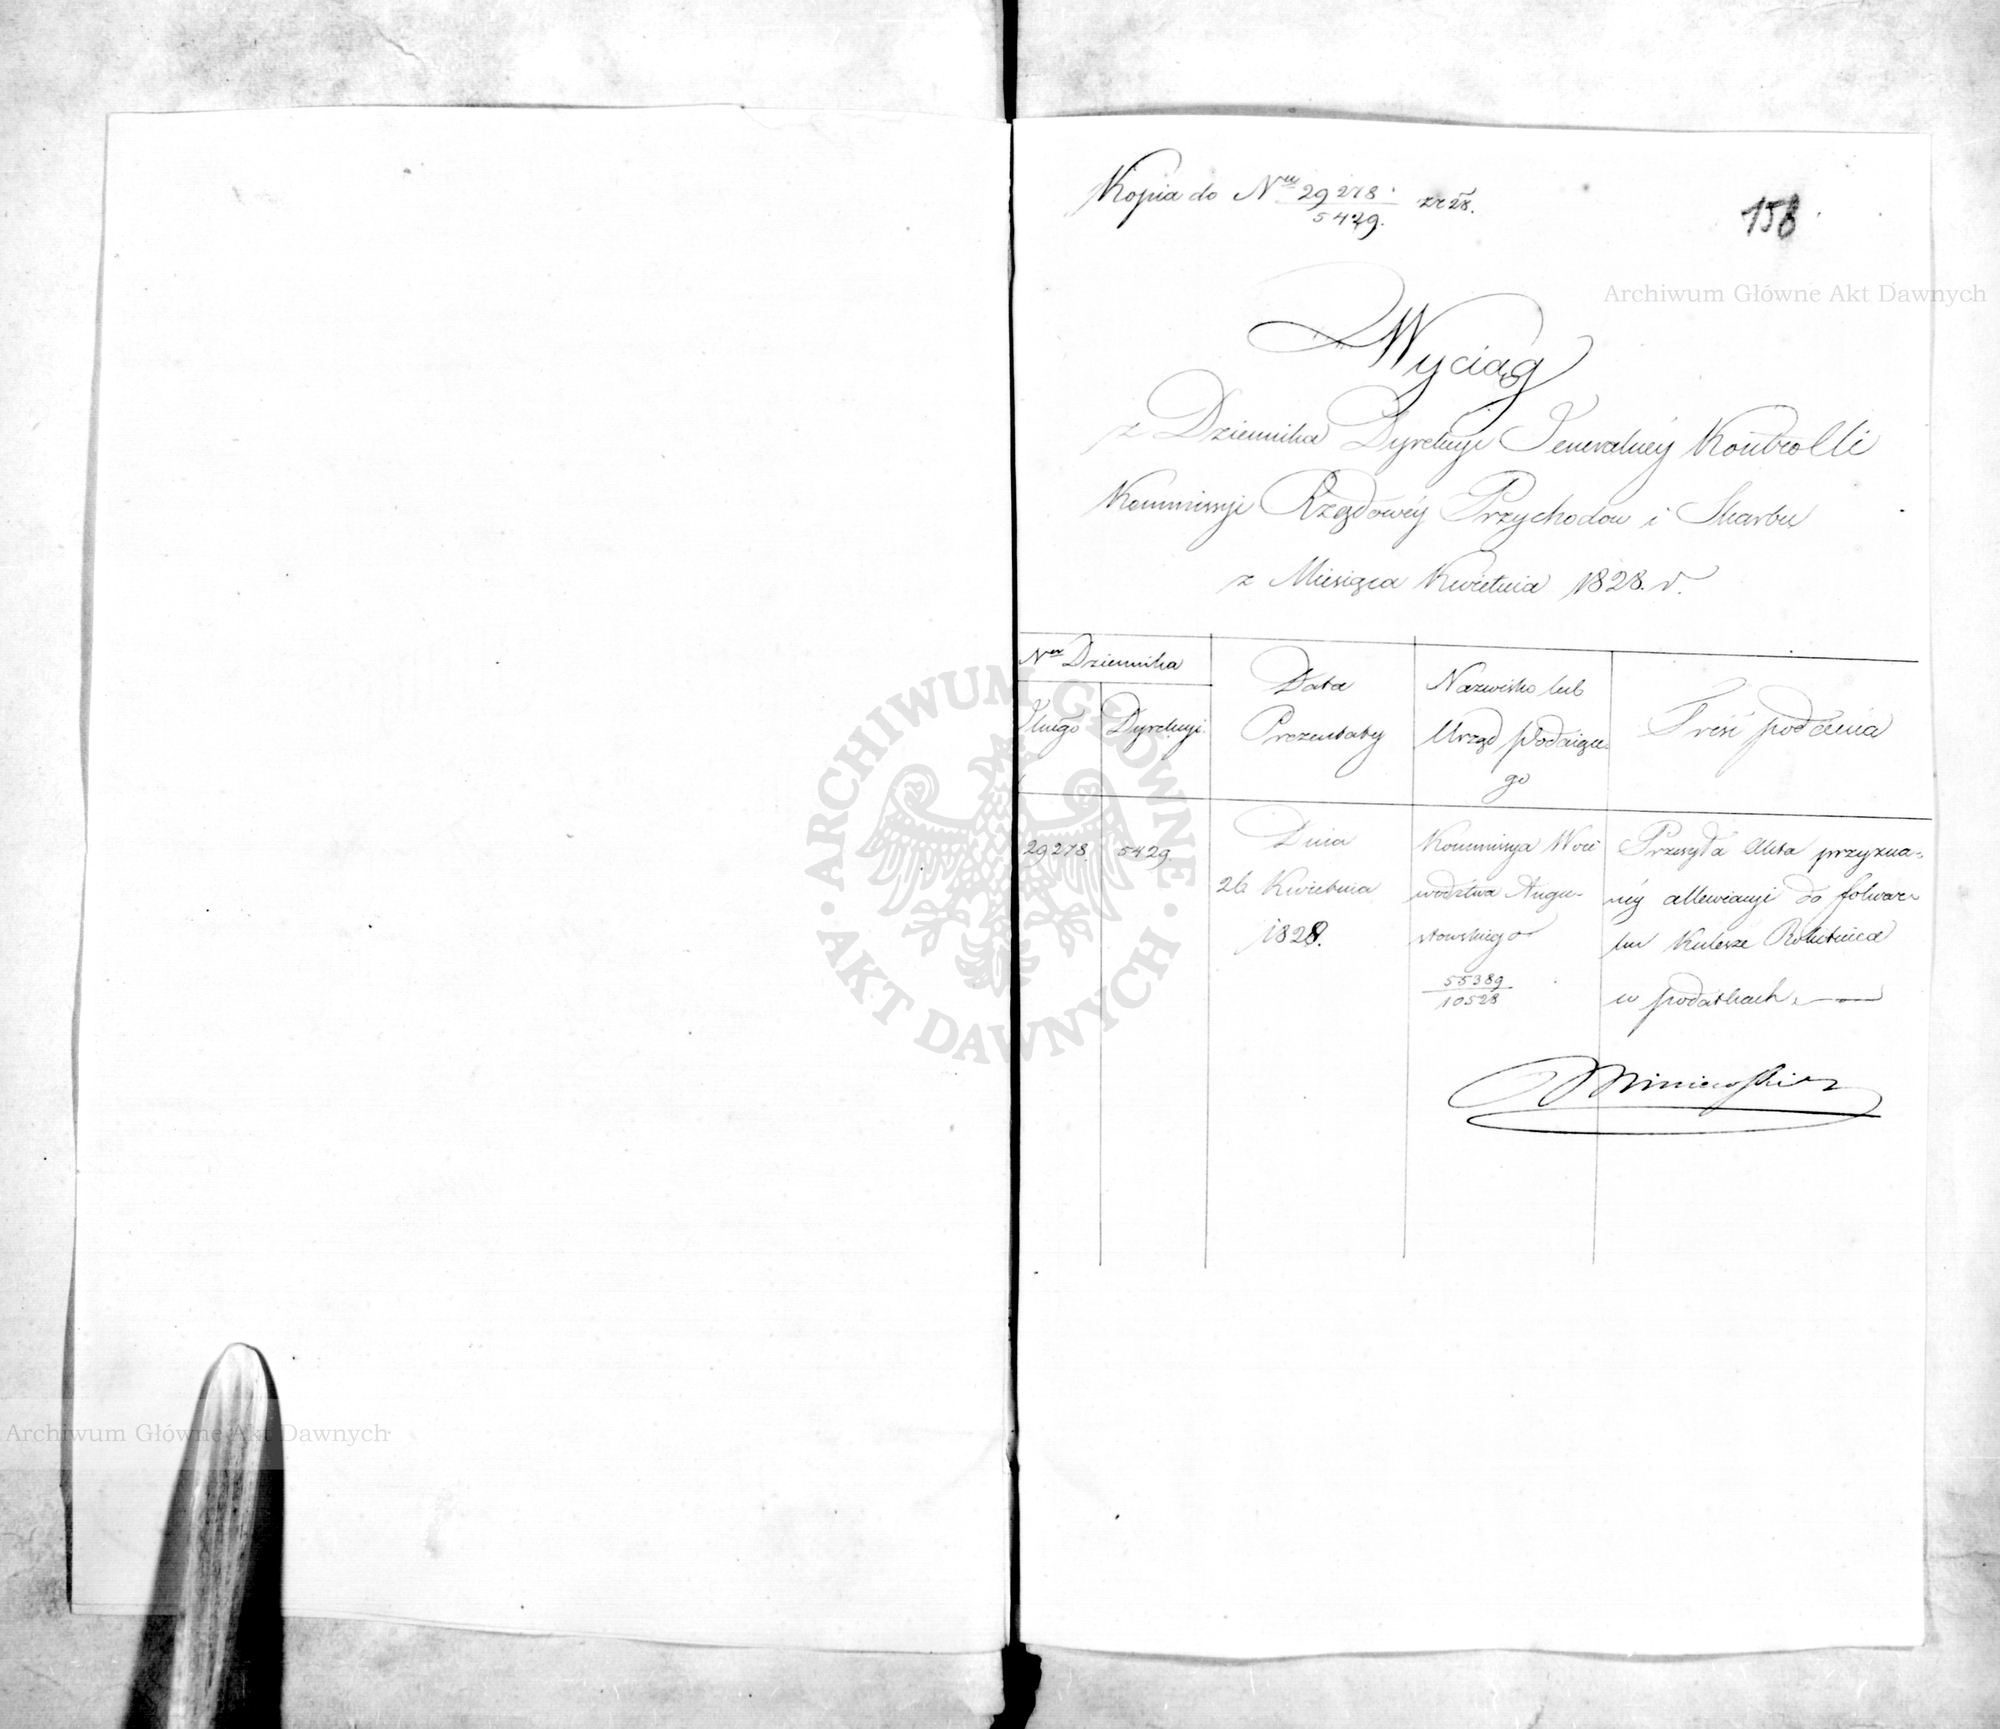 Kopia do N<sup>ru</sup> 29278/5429. ze 28.
158
Archiwum Główne Akt Dawnych
Wyciąg
z Dziennika Dyrekcyi Jeneralney Kontrolli
Kommissyi Rządowéy Przychodów i Skarbu
z Miesiąca Kwietnia 1828. r.
N<sup>er</sup> Dziennika
Dyrekcyi.
Data
Prezentaty
Nazwisko lub
Urząd podaiące-
go
Treść podania
29278.
5429.
Dnia
26 Kwietnia
1828.
Kommissya Woie
wodztwa Augu-
stowskiego
55389/10528
Przesyła Akta przyzna-
néy allewiacyi do folwar-
ku Kulesze Rokitnica
w podatkach.
ARCHIWUM GŁÓWNE
AKT DAWNYCH
Archiwum Główne Akt Dawnych